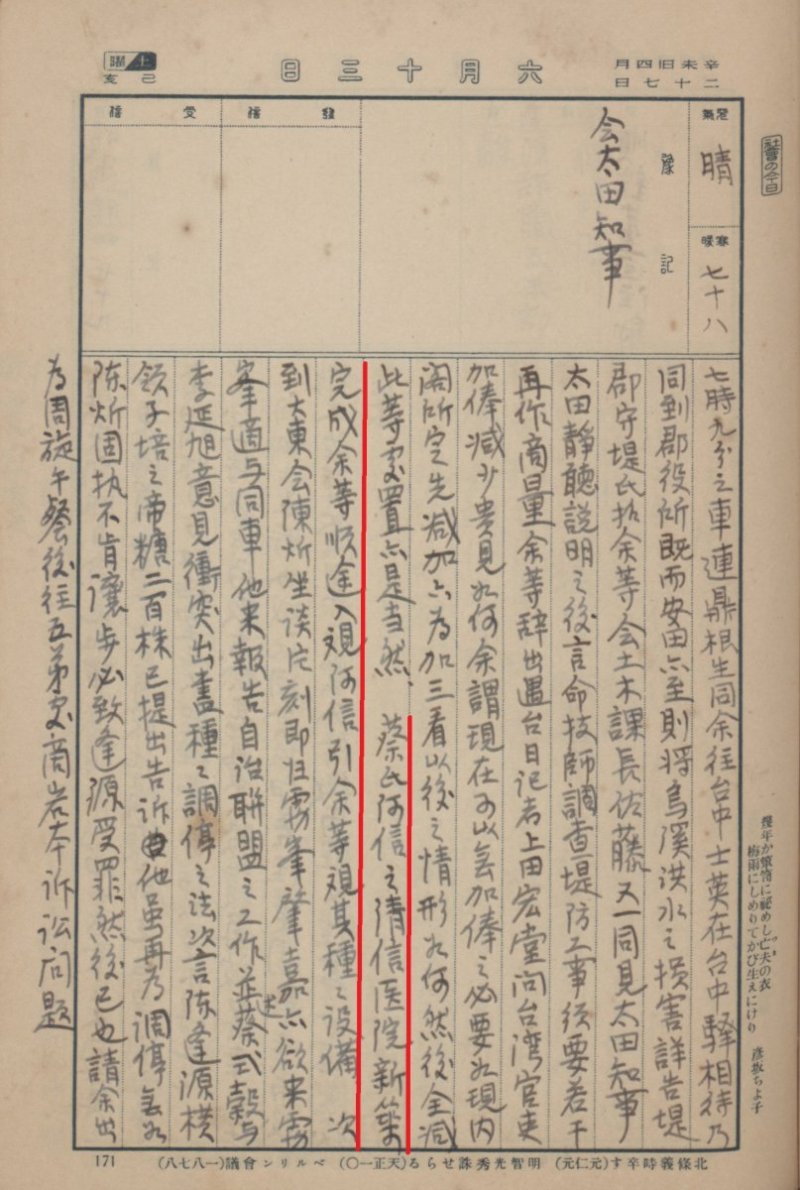 辛未旧四月
二十七日
六月十三日
土曜
己亥
社會の今日
天氣
晴
寒暖
七十八
豫記
会太田知事
發信
受信
七時九分之車連鼎根生同余往台中士英在台中驛相待乃
同到郡役所既而安田亦至則将烏溪洪水之損害詳告堤
郡守堤氏拉余等会土木課長佐藤又一同見太田知事
太田靜聽説明之後言命技師調查堤防工事後要若干
再作商量余等辞出遇台日記者上田宏堂问台湾官吏
加俸减少貴見如何余謂現在可以無加俸之必要如現内
閣所定先减加六為加三看以後之情形如何然後全减
此等処置亦是当然、蔡氏阿信之清信医院新築
完成余等順途入観阿信引余等观其種々设備 次
到大東会陳炘坐谈片刻即归霧峯肇嘉亦欲来霧
峯適与同車他来報告自治聯盟之工作並述蔡式穀与
李延旭意見衝突出盡種々調停之法次言陈逢源横
領子培之帝糖二百株已提出告诉他虽再為調停無如
陈炘固执不肯讓步必致逢源受罪然後已也請余出
為周旋午餐後往五弟処商岩本诉讼问题
幾年か簞笥に秘めし亡夫の衣
梅雨にしめりてかび生えにけり 彦坂ちよ子
北條義時卒す(元仁元) 明智光秀誅せらる(天正一〇) ベルリン會議(一八七八)
171